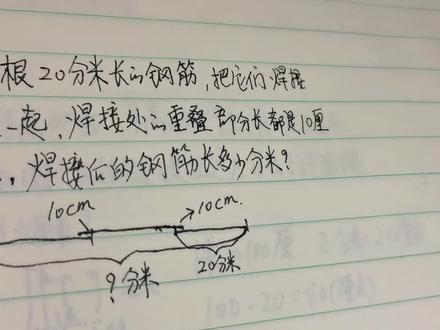 根20分米长的钢筋,把它们焊接
一起,焊接处的重叠部分长都是10厘
,焊接后的钢筋长多少分米?
10cm
10cm.
20分米
?分米
100-20=80(厘米)